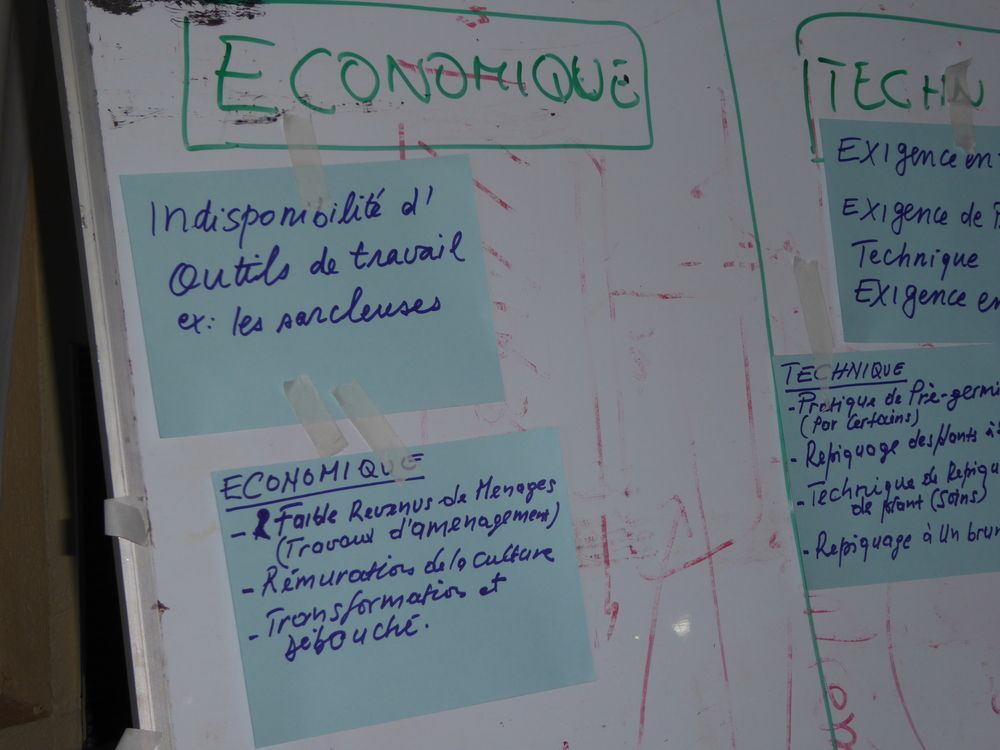 ECONOMIQUE
Indisponibilité d'
Outils de travail
ex: les sarcleuses
ECONOMIQUE
- Faible Revenus de Menages
(Travaux d'aménagement)
- Rémuration de la culture
- Transformation et
débouché.
TECHN
Exigence en
Exigence de
Technique
Exigence en
TECHNIQUE
- Pratique de Pré-germi
(Par Certains)
- Repiquage des plants à
- Technique de Repiqu
de plant (Soins)
- Repiquage à Un brun